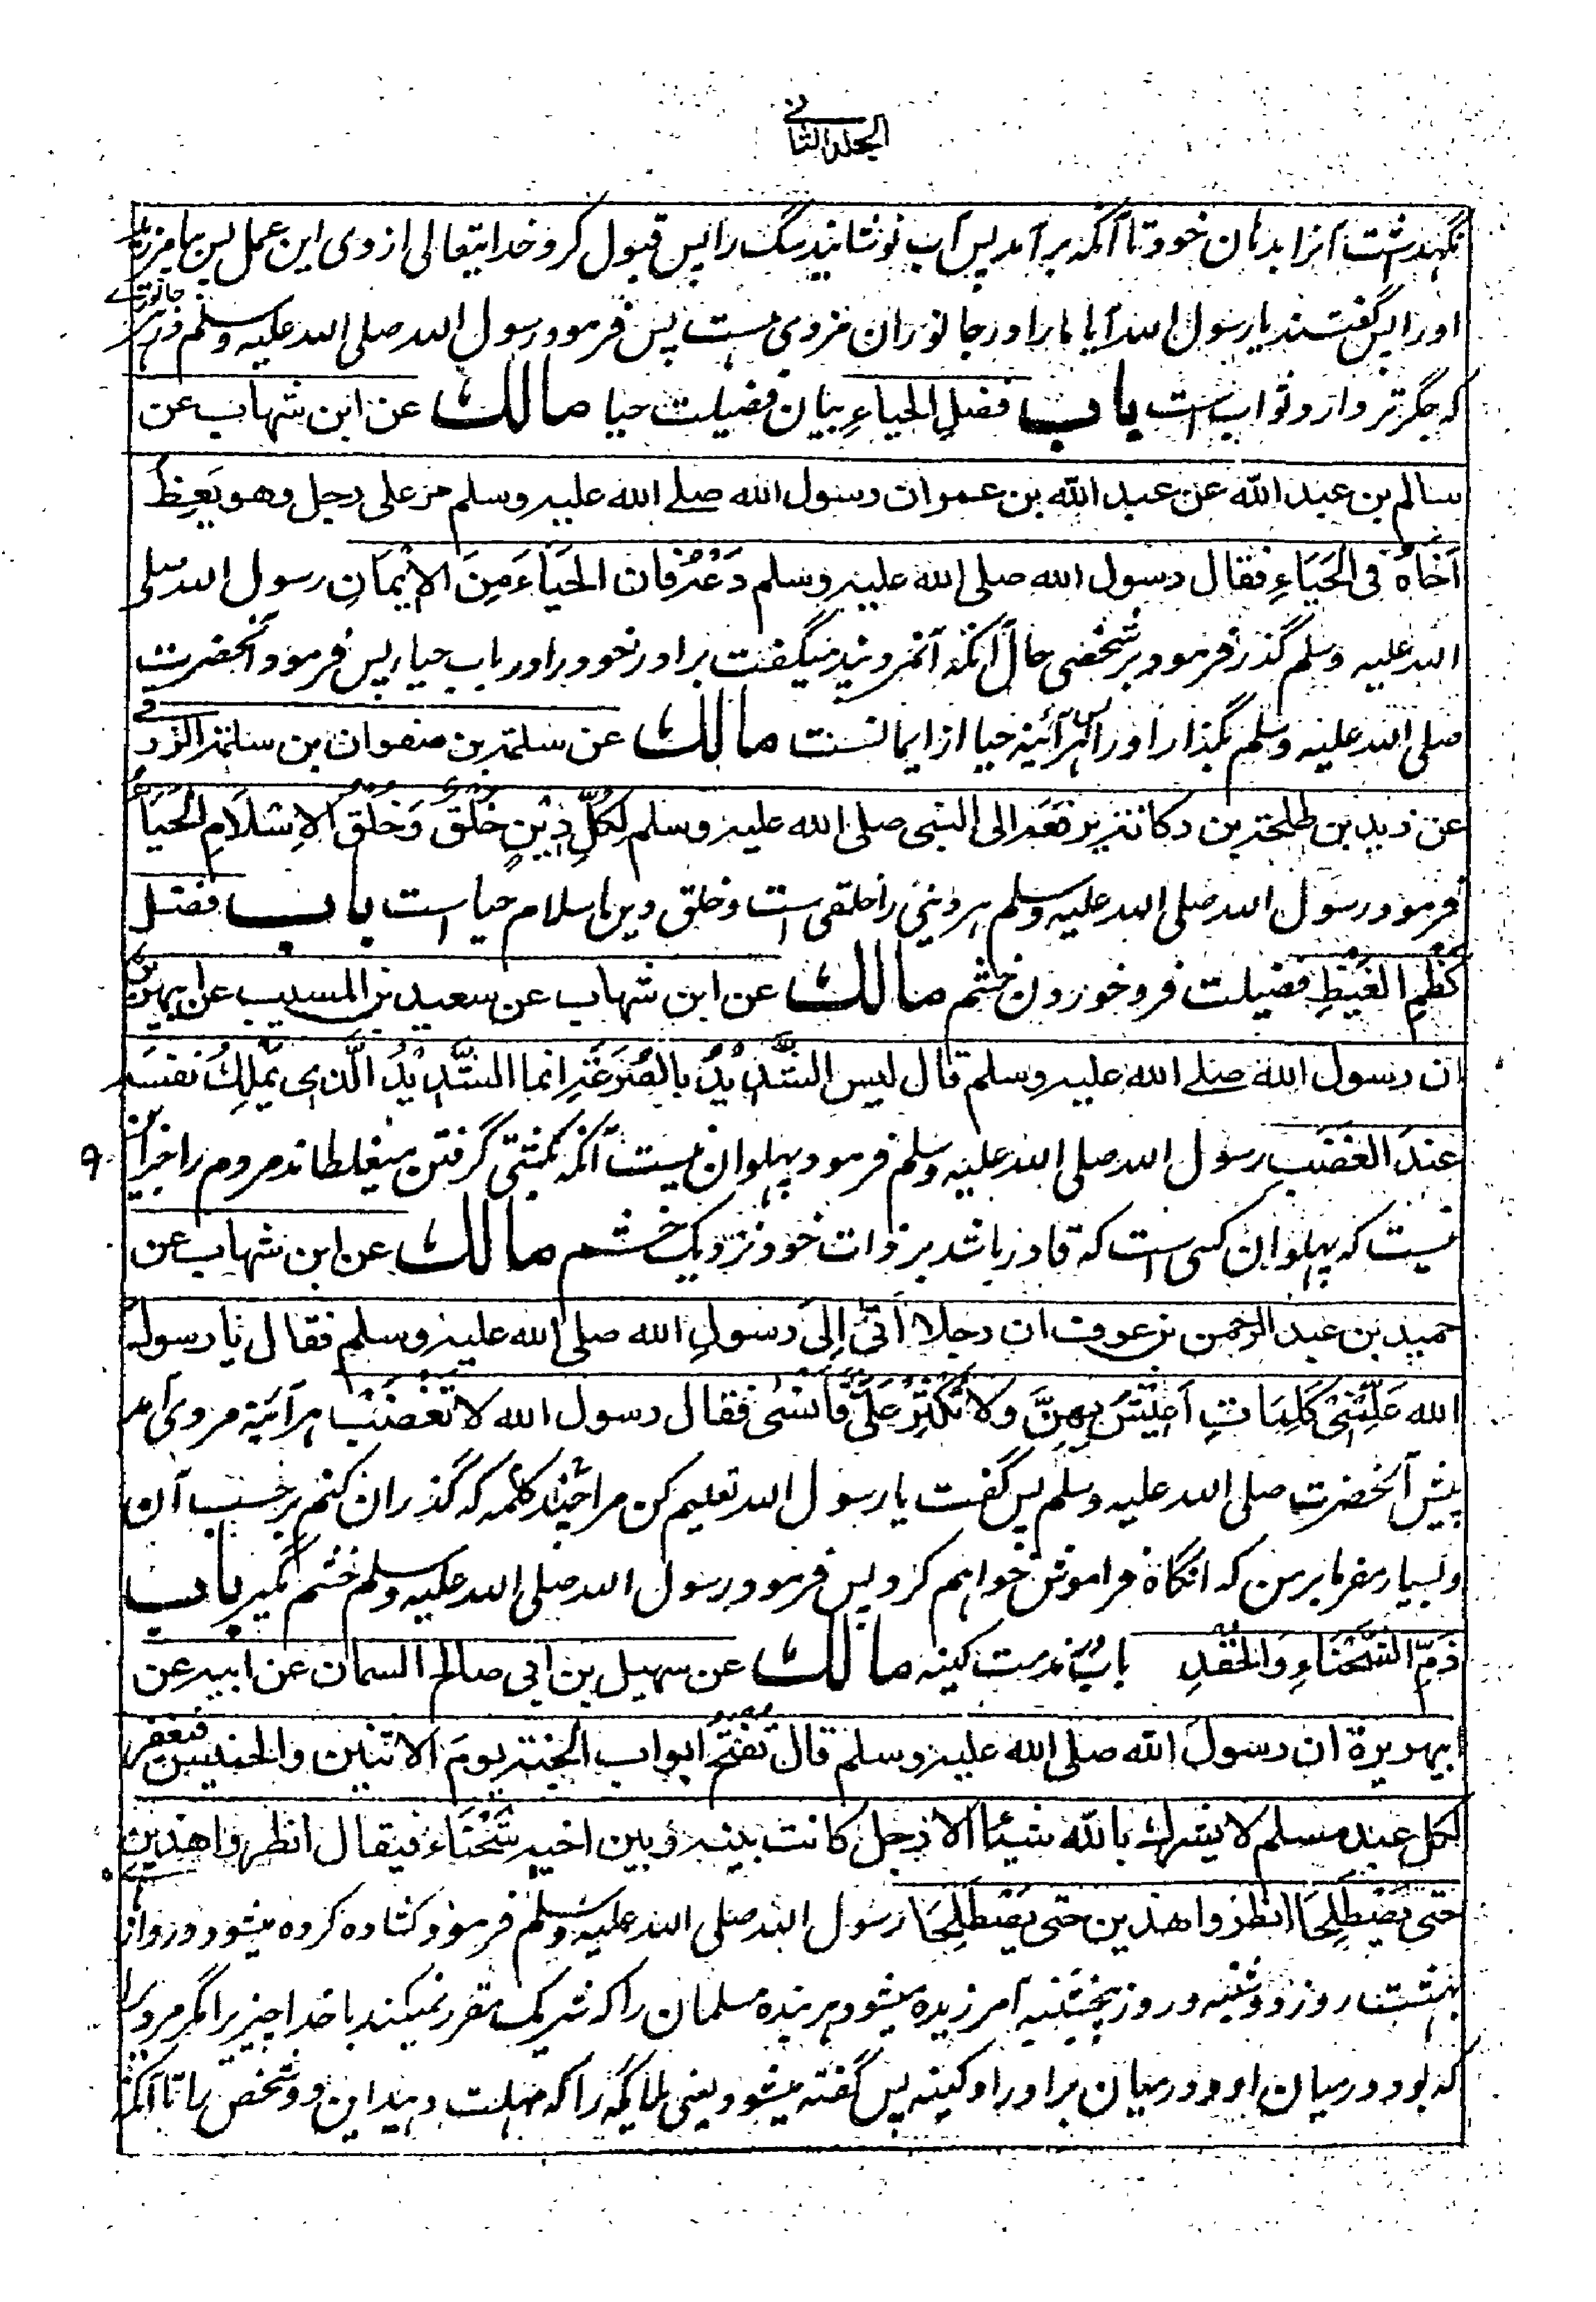 الجلد الثانی
نگهداشت آنرا بدهان خود تا آنکه برآمد پس آب نوشانید سگ را پس قبول کرد خدایتعالی از وی این عمل پس بیامرزید
اورا پس گفتند یا رسول الله آیا مارا در جانوران مزدی هست پس فرمود رسول الله صلی الله علیه وسلم در هر جانوری
که جگر تر دارد ثواب است باب فضلِ الحیاءِ بیان فضیلت حیا مالك عن ابن شهاب عن
سالم بن عبد الله عن عبد الله بن عمر ان رسول الله صلے الله علیه وسلم مر علی رجل وهو یَعِظُ
اَخَاهُ فی الحَیَاءِ فقال رسول الله صلی الله علیه وسلم دَعْهُ فان الحَیَاءَ مِنَ الاِیْمَانِ رسول الله صلی
الله علیه وسلم گذر فرمود بر شخصی حال آنکه آنمرد پند میگفت برادر خود را در باب حیا پس فرمود آنحضرت
صلی الله علیه وسلم بگذار اورا پس هر آئینه حیا از ایمانست مالك عن سلمة بن صفوان بن سلمة الزرقی
عن زید بن طلحة بن رکانة یرفعه الی النبی صلی الله علیه وسلم لِکُلِّ دِیْنٍ خُلُقٌ وَخُلُقُ الاِسْلَامِ الحَیَاءُ
فرمود رسول الله صلی الله علیه وسلم هر دینی را خلقی است وخلق دین اسلام حیا است باب فضل
کَظْمِ الغَیْظِ فضیلت فرو خوردن خشم مالك عن ابن شهاب عن سعید بن المسیب عن ابیهریرة
ان رسول الله صلے الله علیه وسلم قال لیس الشَّدِیْدُ بالصُّرَعَةِ انما الشَّدِیْدُ الَّذِی یَمْلِكُ نفسَه
عِنْدَ الغَضَبِ رسول الله صلی الله علیه وسلم فرمود پهلوان نیست آنکه بکشتی گرفتن میغلطاند مردم را جز این
۹
نیست که پهلوان کسی است که قادر باشد بر ذات خود نزدیک خشم مالك عن ابن شهاب عن
حمید بن عبد الرحمن بن عوف ان رجلا اَتٰی اِلٰی رسولِ الله صلی الله علیه وسلم فقال یا رسول
الله عَلِّمْنِیْ کَلِمَاتٍ اَعِیْشُ بِهِنَّ ولا تُکْثِرْ عَلَیَّ فَاَنْسٰی فقال رسول الله لا تَغْضَبْ هر آئینه مردی آمد
پیش آنحضرت صلی الله علیه وسلم پس گفت یا رسول الله تعلیم کن مرا چند کلمه که گذران کنم بر حسب آن
وبسیار مفرما بر من که آنگاه فراموش خواهم کرد پس فرمود رسول الله صلی الله علیه وسلم خشم مگیر باب
ذمِّ الشَّحْنَاءِ وَالحِقْدِ باب مذمت کینه مالك عن سهیل بن ابی صالح السمان عن ابیه عن
ابیهریرة ان رسول الله صلی الله علیه وسلم قال تُفْتَحُ ابواب الجنة یومَ الاثنین والخمیس فیغفر
لکل عبد مسلم لا یشرك بالله شیئا الا رجل کانت بینه وبین اخیه شَحْنَاء فیقال انظروا هذین
حتی یَصْطَلِحَا انظروا هذین حتی یَصْطَلِحَا رسول الله صلی الله علیه وسلم فرمود کشاده کرده میشود دروازه های
بهشت روز دوشنبه و روز پنجشنبه آمرزیده میشود هر بنده مسلمان را که شریک مقرر نمیکند با خدا چیزیرا مگر مردیرا
که بود در میان او و در میان برادر او کینه پس گفته میشود یعنی ملائکه را که مهلت دهید این دو شخص را تا آنکه